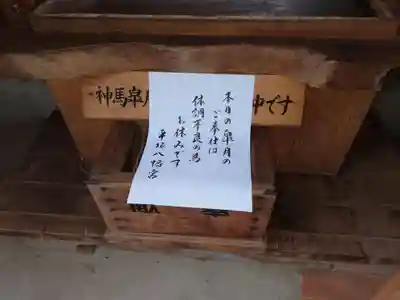 神馬皐月
中です
本日の皐月の
ご奉仕は
休調不良の為
お休みです
平塚八幡宮
奉